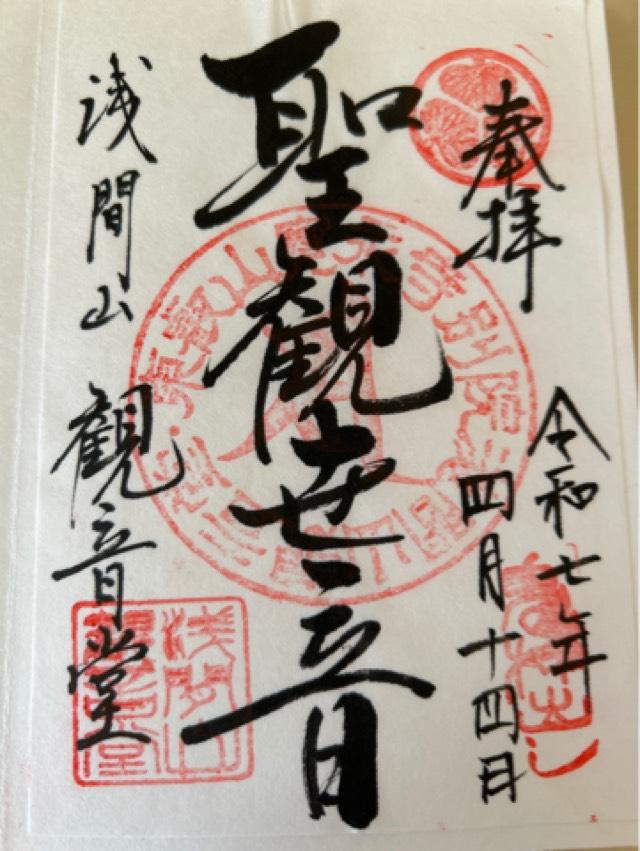 奉拝
令和七年
四月十四日
聖觀世音
浅間山 觀音堂
浅間山
觀音堂